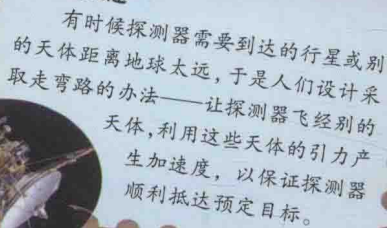 有时候探测器需要到达的行星或别
的天体距离地球太远，于是人们设计采
取走弯路的办法——让探测器飞经别的
天体，利用这些天体的引力产
生加速度，以保证探测器
顺利抵达预定目标。